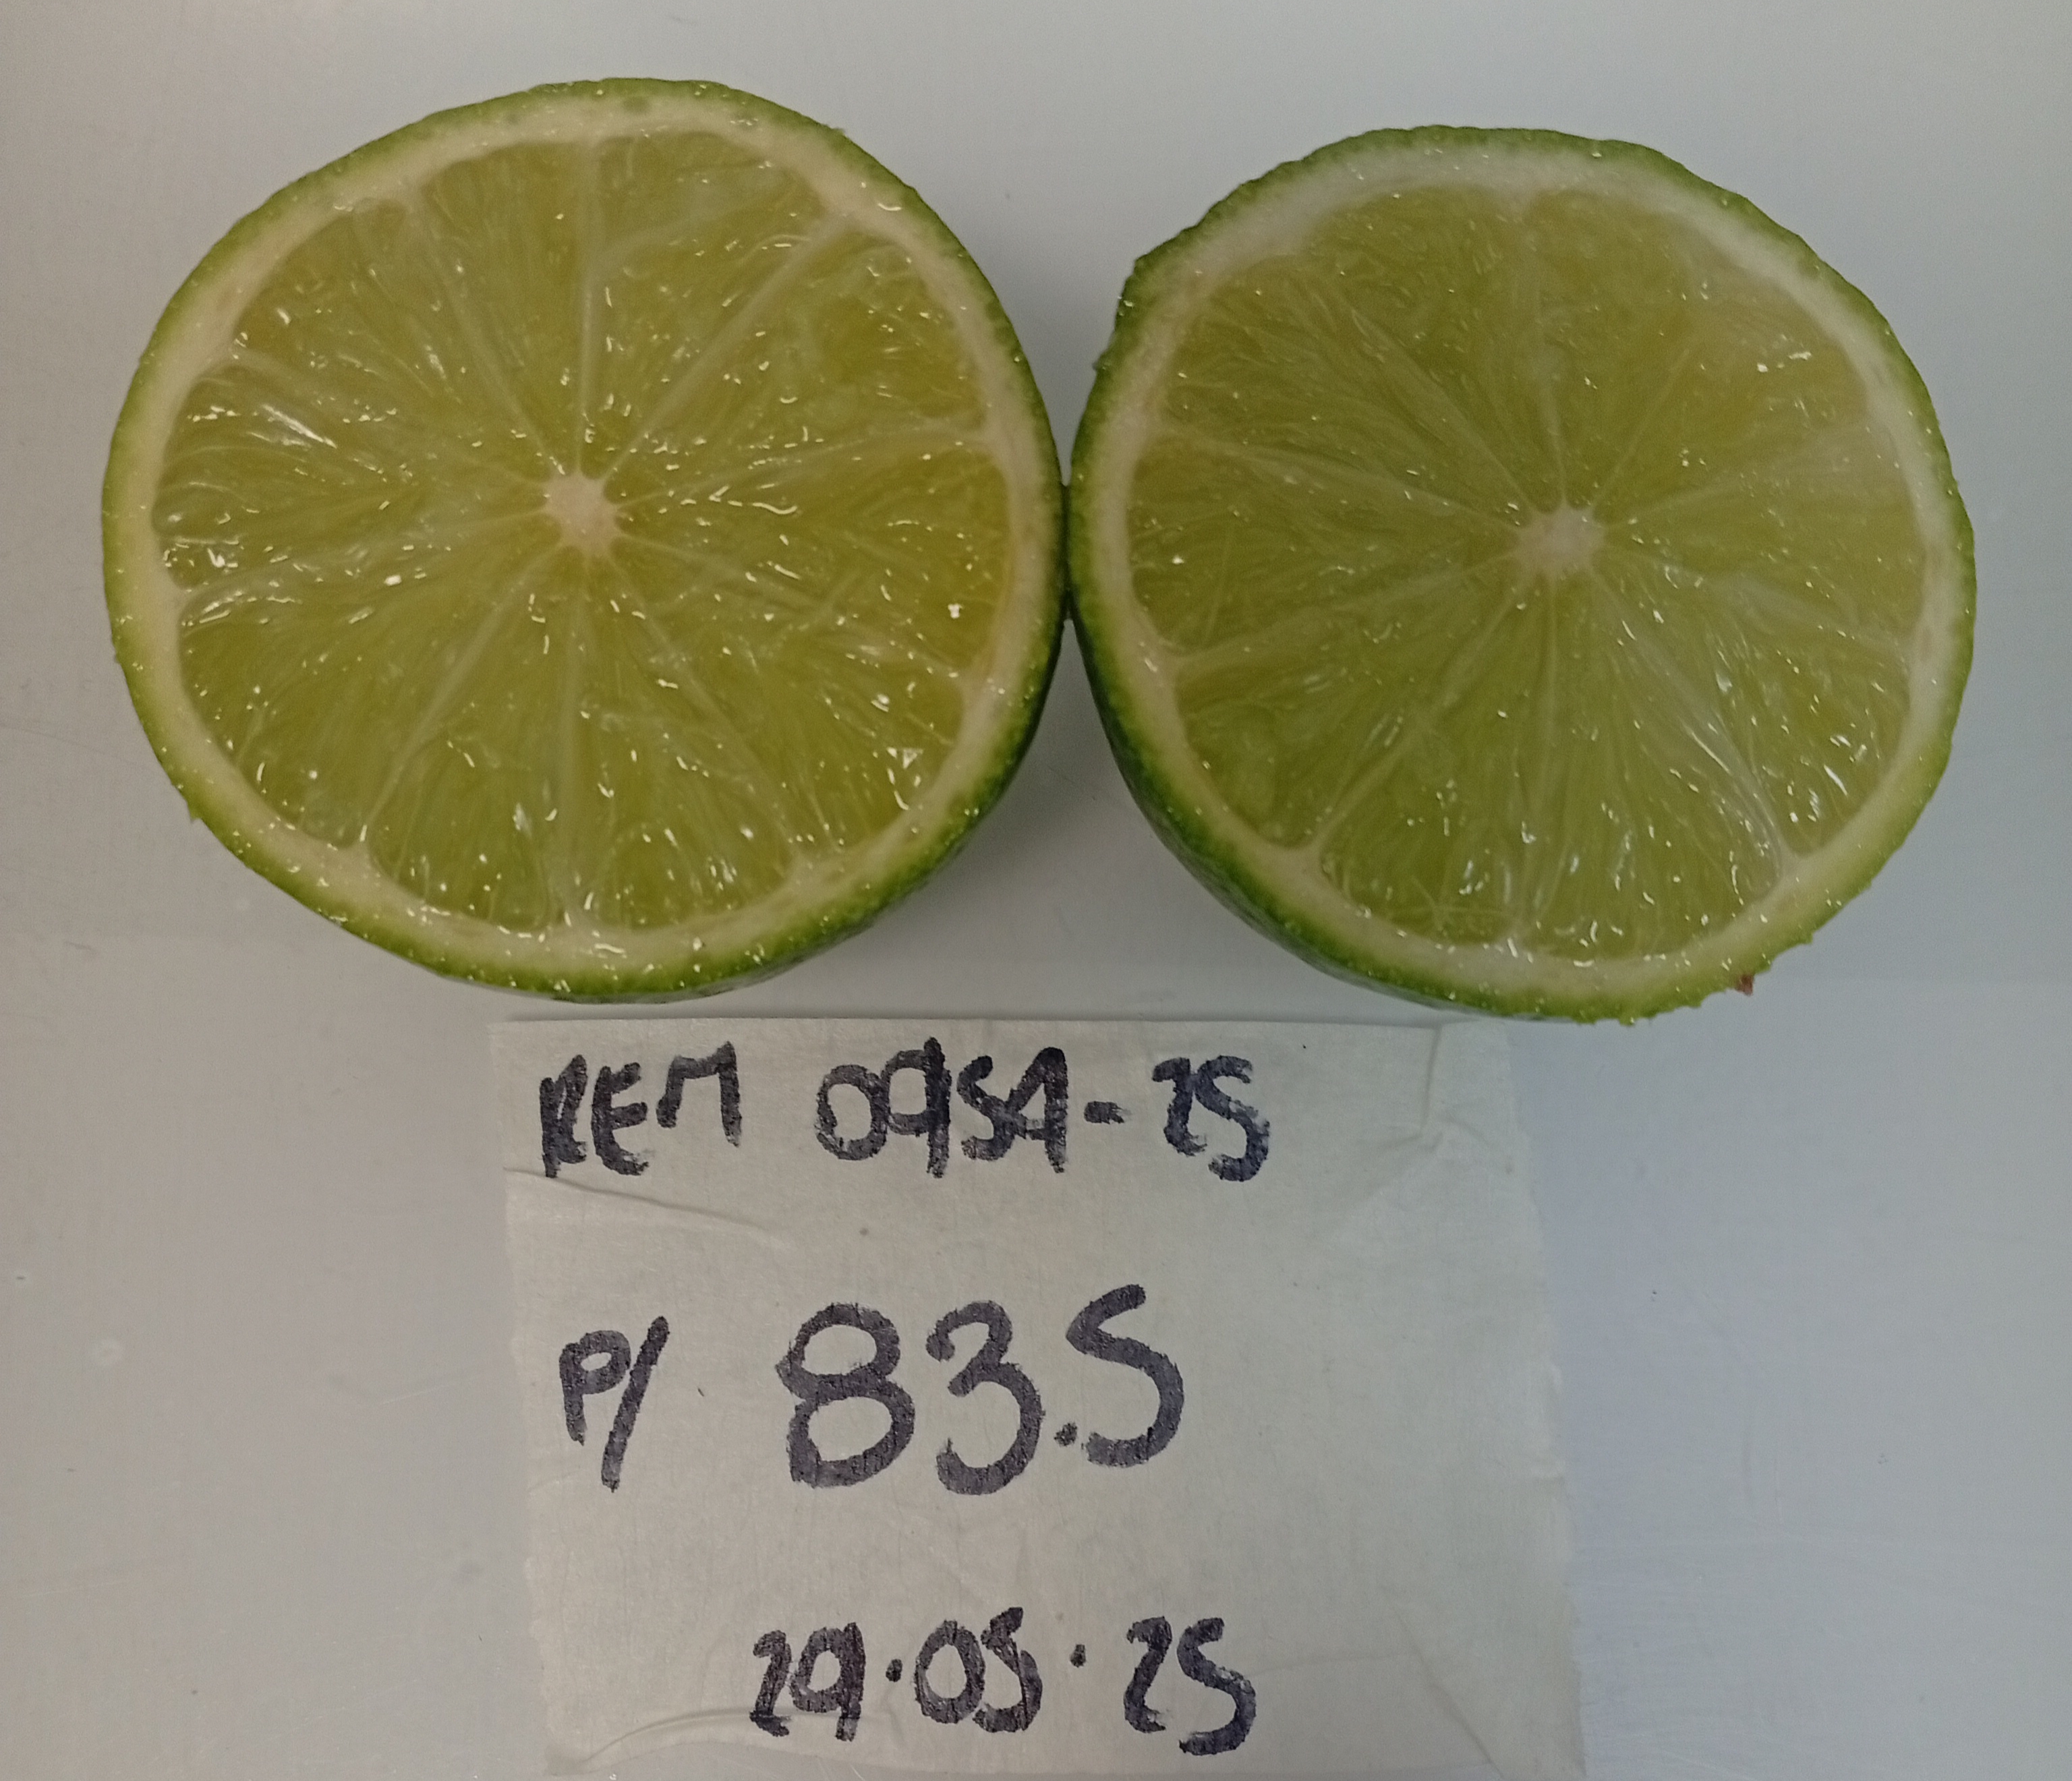 REM 0954-25
P/ 83.5
29.05.25